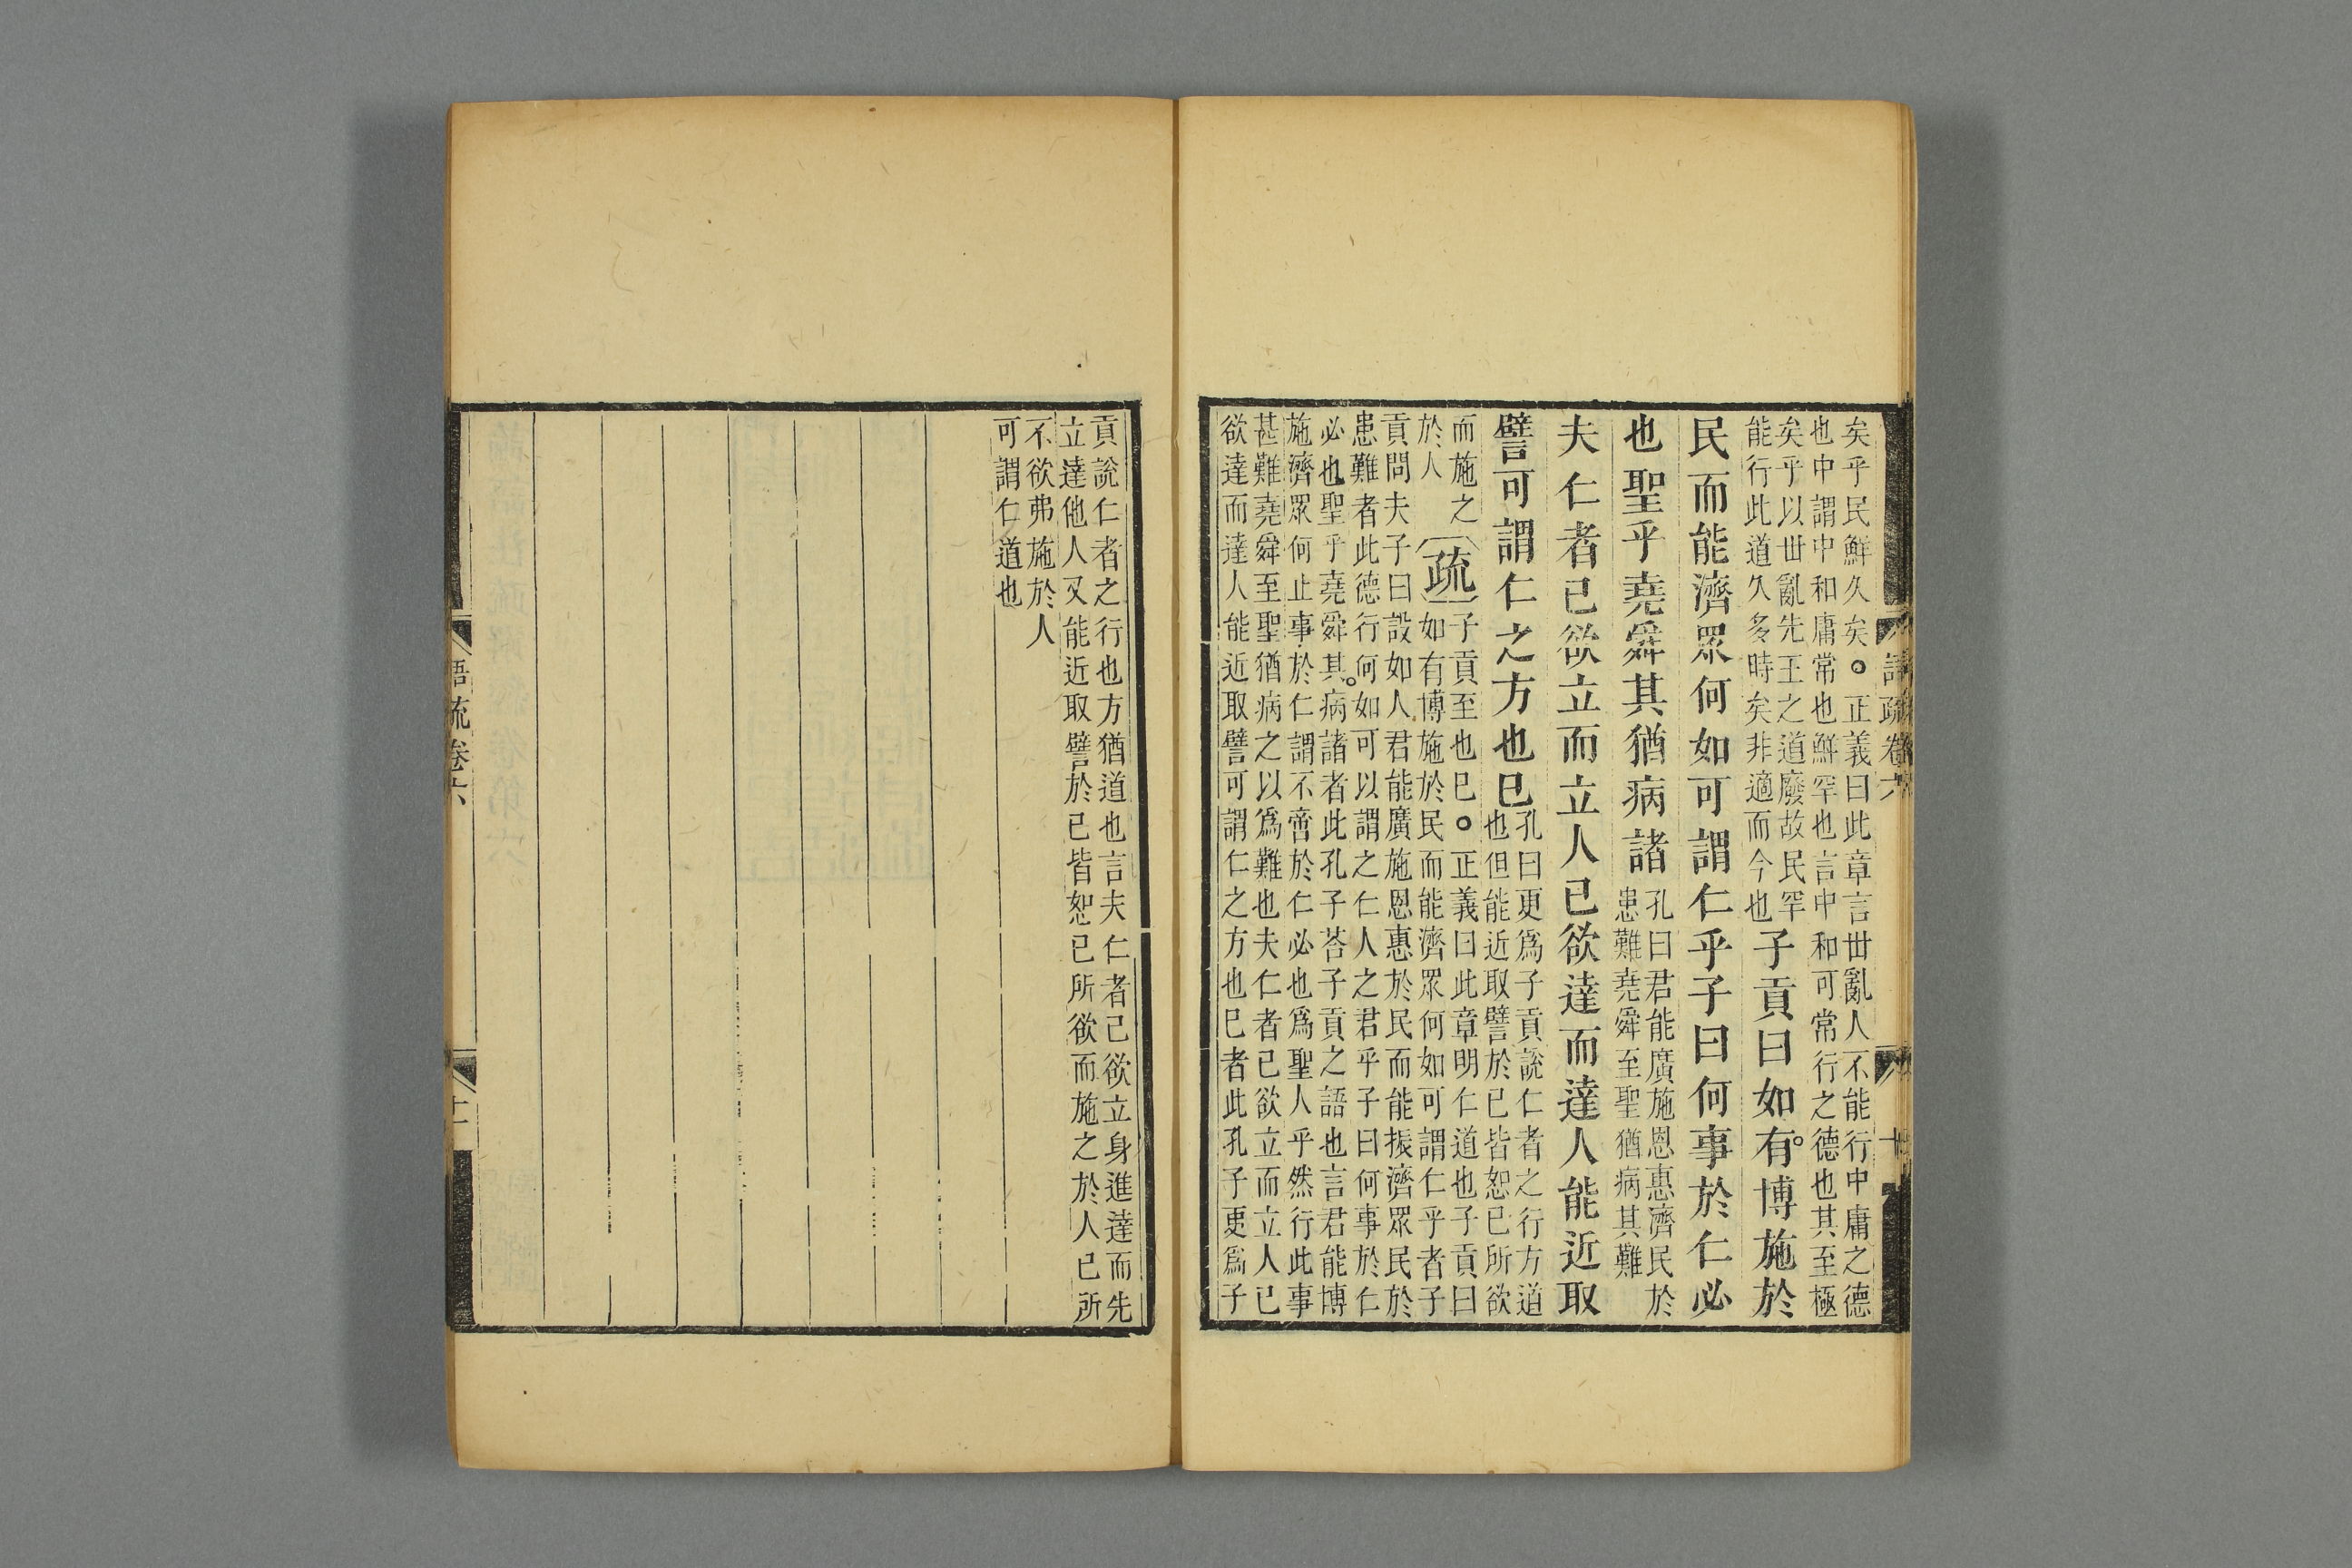 矣乎民鮮久矣。正義曰此章言世亂人不能行中庸之德
也中謂中和庸常也鮮罕也言中和可常行之德也其至極
矣乎以世亂先王之道廢故民罕
能行此道久多時矣非適而今也
子貢曰如有博施於
民而能濟眾何如可謂仁乎子曰何事於仁必
也聖乎堯舜其猶病諸
孔曰君能廣施恩惠濟民於
患難堯舜至聖猶病其難
夫仁者己欲立而立人己欲達而達人能近取
譬可謂仁之方也已
孔曰更為子貢說仁者之行方道
也但能近取譬於己皆恕己所欲
而施之
於人
疏
子貢至也已。正義曰此章明仁道也子貢曰
如有博施於民而能濟眾何如可謂仁乎者子
貢問夫子曰設如人君能廣施恩惠於民而能振濟眾民於
患難者此德行何如可以謂之仁人之君乎子曰何事於仁
必也聖乎堯舜其病諸者此孔子荅子貢之語也言君能博
施濟眾何止事於仁謂不啻於仁必也為聖人乎然行此事
甚難堯舜至聖猶病之以為難也夫仁者己欲立而立人己
欲達而達人能近取譬可謂仁之方也已者此孔子更為子
貢說仁者之行也方猶道也言夫仁者己欲立身進達而先
立達他人又能近取譬於己皆恕己所欲而施之於人己所
不欲弗施於人
可謂仁道也
語疏卷六
十
語疏卷六
十一